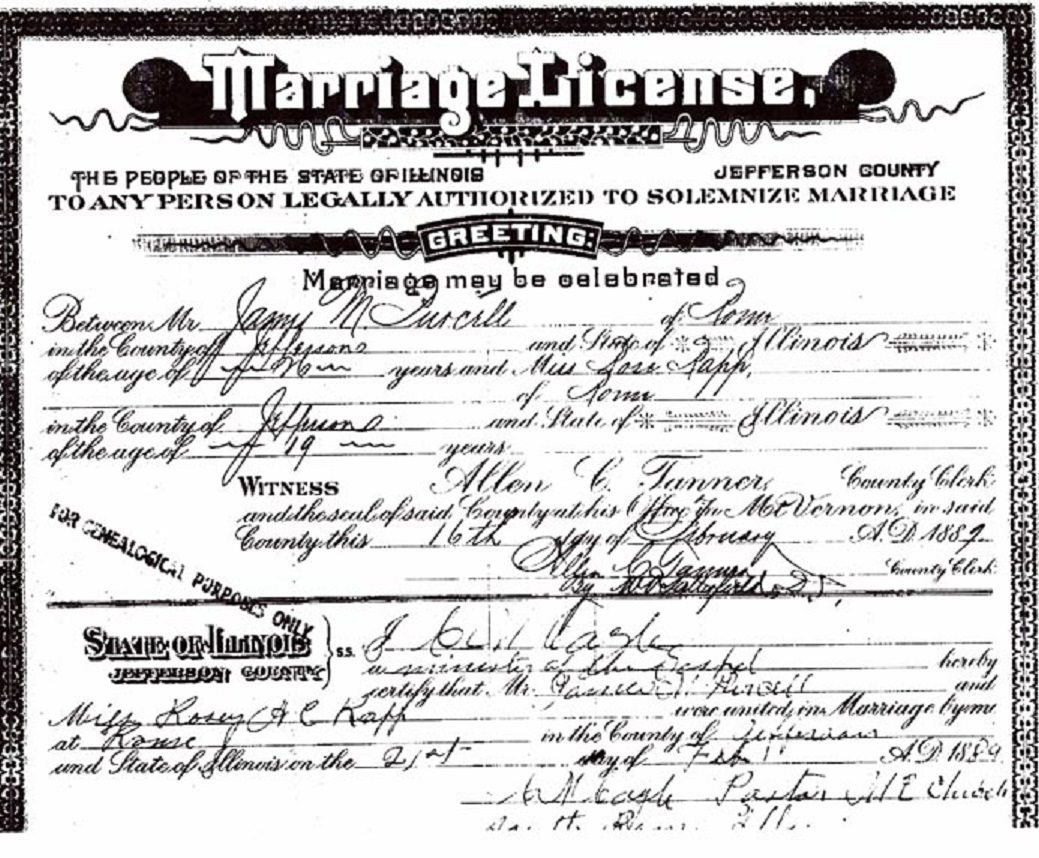 Marriage License,
THE PEOPLE OF THE STATE OF ILLINOIS JEFFERSON COUNTY
TO ANY PERSON LEGALLY AUTHORIZED TO SOLEMNIZE MARRIAGE
GREETING:
Marriage may be celebrated
Between Mr. James M. Purcell of Rome
in the County of Jefferson and State of Illinois
of the age of years and Miss Rosa Rapp,
of Rome
in the County of Jefferson and State of Illinois
of the age of 19 years
WITNESS Allen C. Tanner, County Clerk
and the seal of said County at his Office In Mt. Vernon, in said
County this 16th day of February A.D. 1889.
Allen C. Tanner County Clerk
By
FOR GENEALOGICAL PURPOSES ONLY
STATE OF ILLINOIS } S.S. I
JEFFERSON COUNTY a minister of the Gospel hereby
certify that Mr. James M. Purcell and
Miss Rosey A C Rapp were united in Marriage by me
at in the County of Jefferson
and State of Illinois on the 21st day of Feb A.D. 1889.
Cash Pastor M E Church